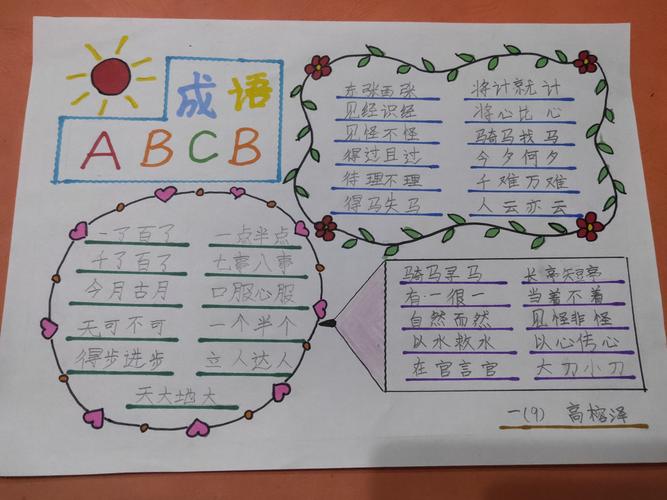 成语
ABCB
东张西张 将计就计
见经识经 将心比心
见怪不怪 骑马找马
得过且过 今夕何夕
待理不理 千难万难
得马失马 人云亦云
一了百了 一点半点
千了百了 七事八事
今月古月 口服心服
天可不可 一个半个
得步进步 立人达人
天大地大
骑马寻马 长亭短亭
有一很一 当着不着
自然而然 见怪非怪
以水救水 以心传心
在官言官 大刀小刀
一(9) 高榕泽